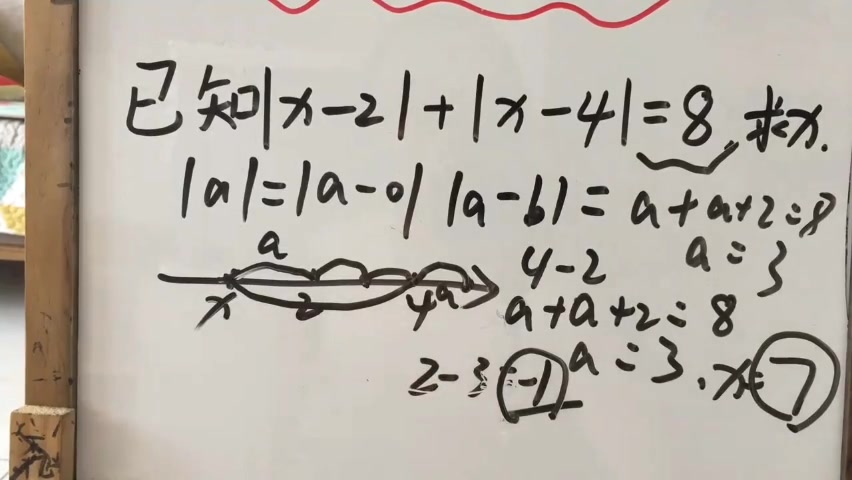 已知|x-2|+|x-4|=8,求x.
|a|=|a-0| |a-b|= a+a+2=8
a 4-2 a=3
x 2 4 a a+a+2=8
2-3=-1 a=3. x=7